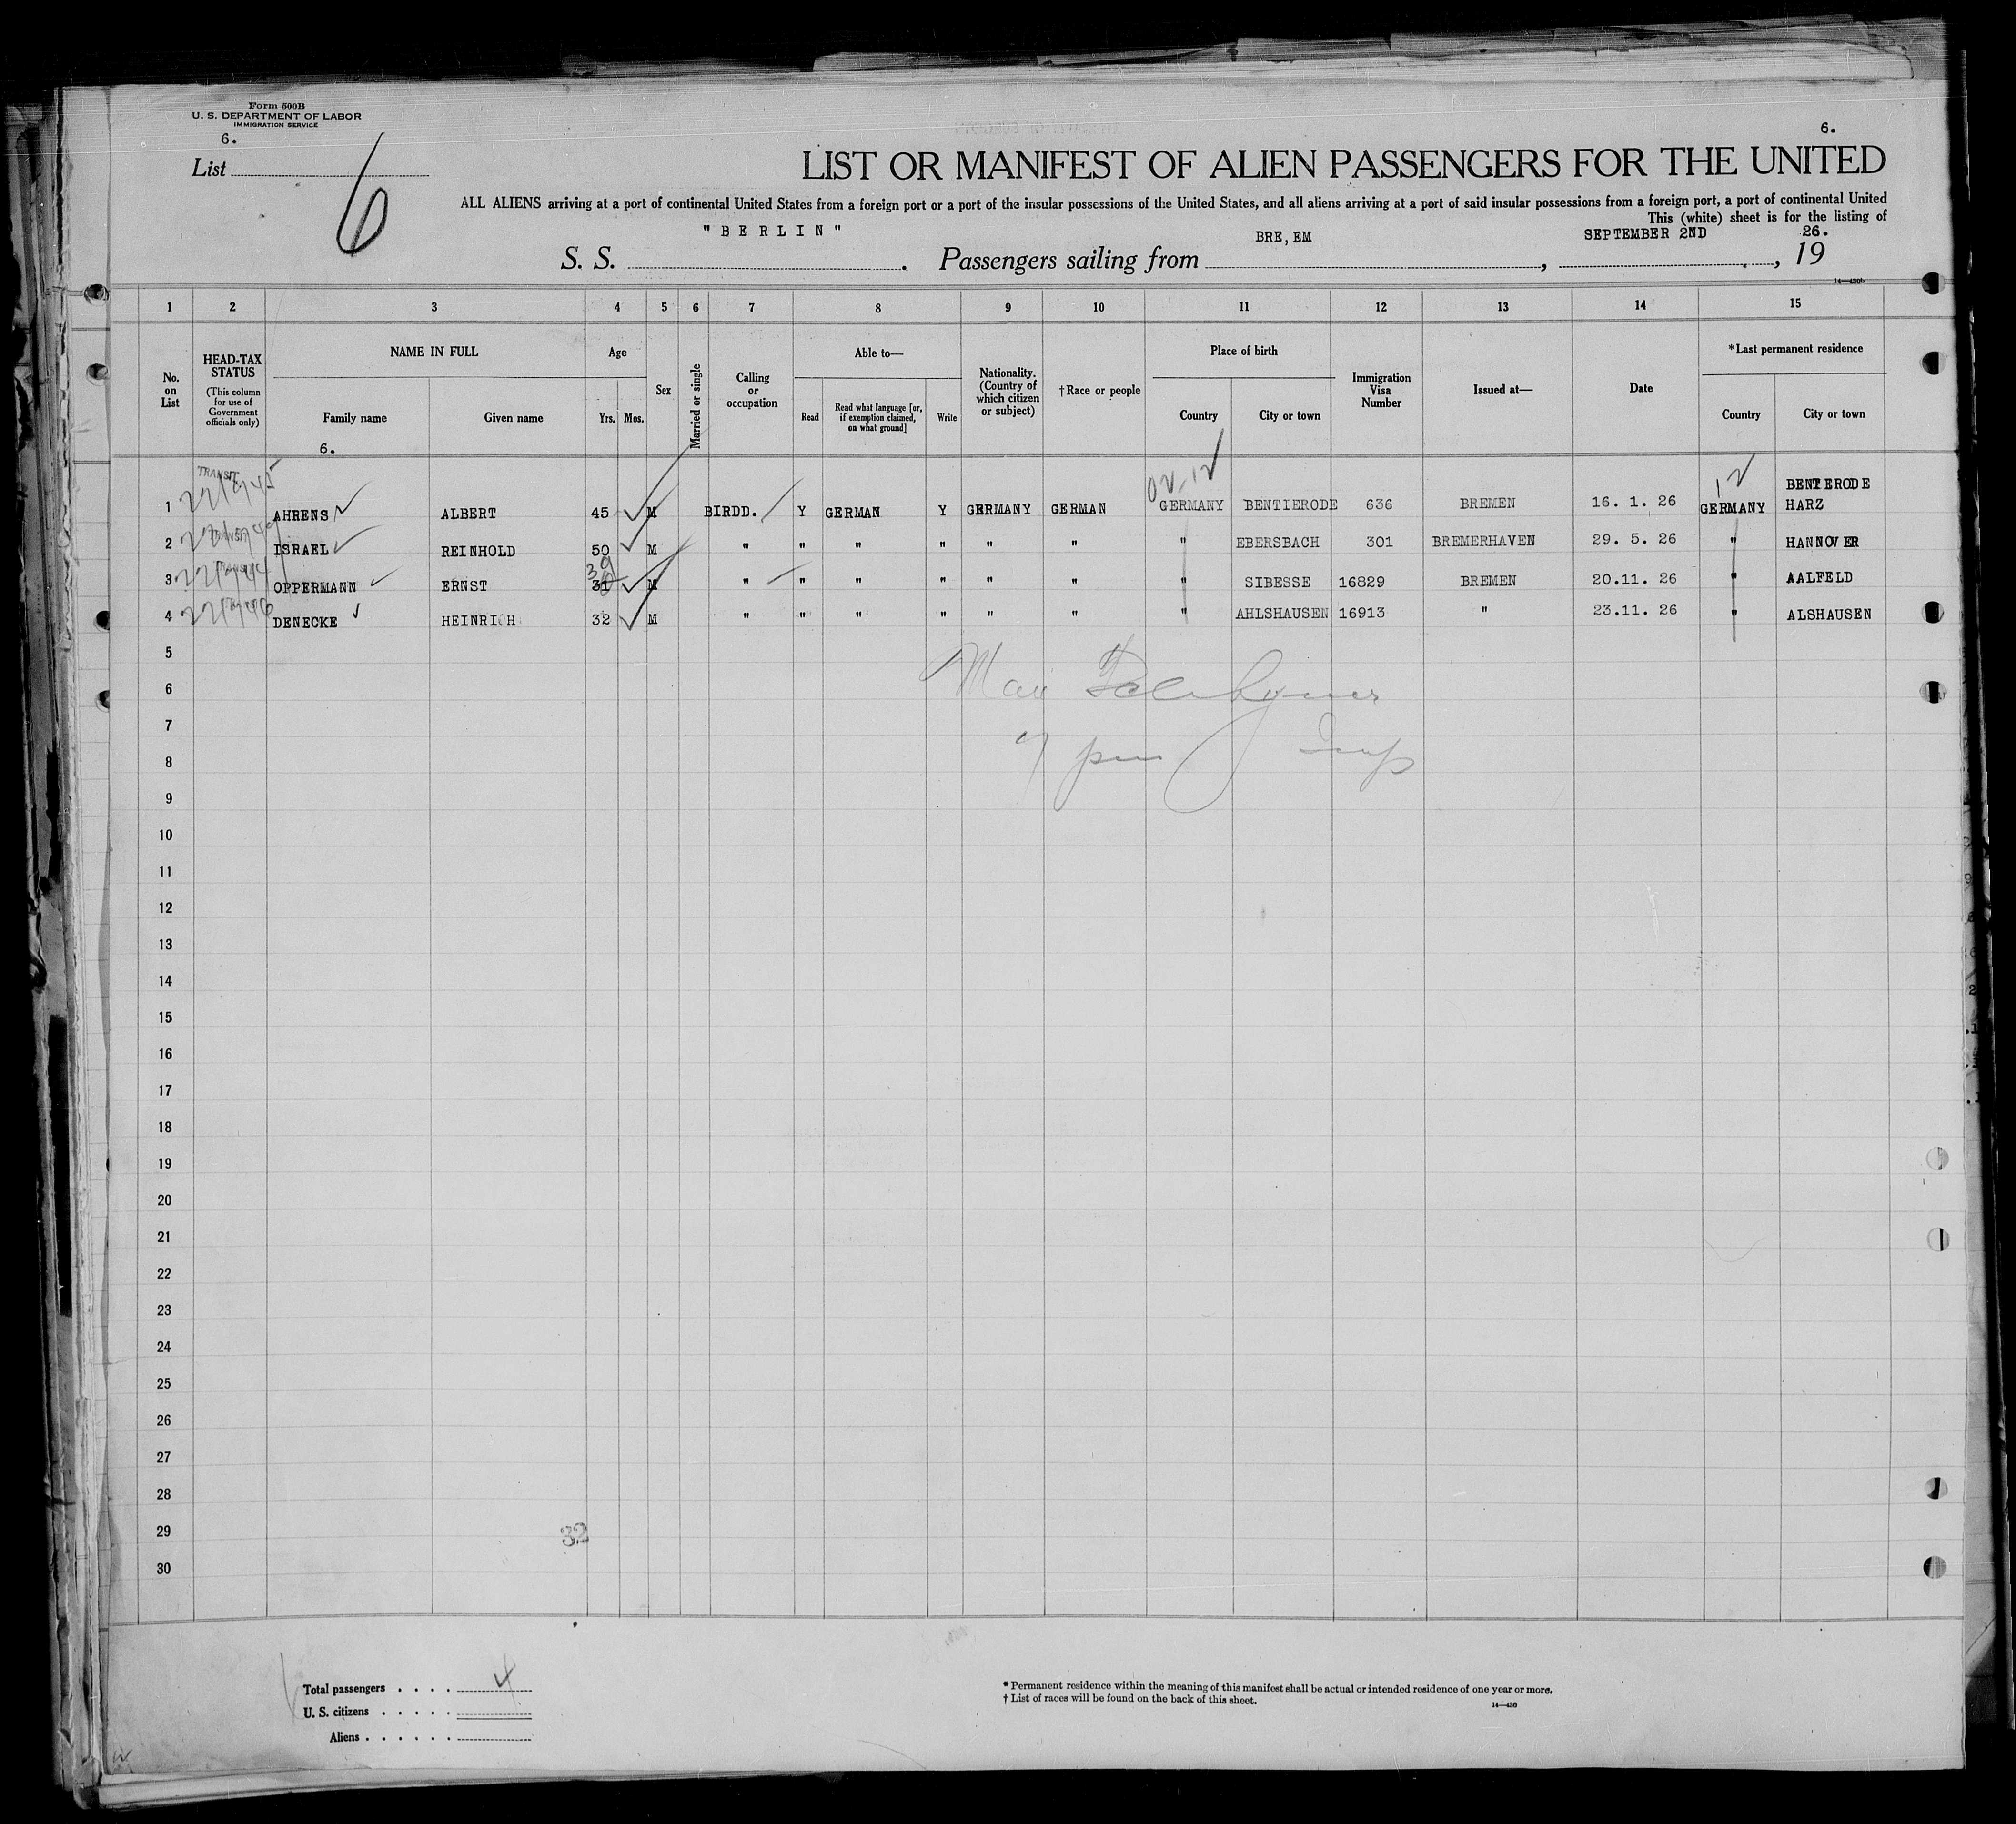 Form 500B
U. S. DEPARTMENT OF LABOR
IMMIGRATION SERVICE
6.
6.
List
6
LIST OR MANIFEST OF ALIEN PASSENGERS FOR THE UNITED
ALL ALIENS arriving at a port of continental United States from a foreign port or a port of the insular possessions of the United States, and all aliens arriving at a port of said insular possessions from a foreign port, a port of continental United
This (white) sheet is for the listing of
S. S. "BERLIN". Passengers sailing from BRE,EM, SEPTEMBER 2ND, 19 26.
14—430b
1 2 3 4 5 6 7 8 9 10 11 12 13 14 15
No. on List
HEAD-TAX STATUS
(This column for use of Government officials only)
NAME IN FULL
Family name
Given name
6.
Age
Yrs. Mos.
Sex
Married or single
Calling or occupation
Able to—
Read
Read what language [or, if exemption claimed, on what ground]
Write
Nationality. (Country of which citizen or subject)
†Race or people
Place of birth
Country
City or town
Immigration Visa Number
Issued at—
Date
*Last permanent residence
Country
City or town
TRANSIT
1 AHRENS ALBERT 45 M BIRDD. Y GERMAN Y GERMANY GERMAN GERMANY BENTIERODE 636 BREMEN 16. 1. 26 GERMANY BENTERODE HARZ
2 ISRAEL REINHOLD 50 M " " " " " " " EBERSBACH 301 BREMERHAVEN 29. 5. 26 " HANNOVER
3 OPPERMANN ERNST 31 39 M " " " " " " " SIBESSE 16829 BREMEN 20.11. 26 " AALFELD
4 DENECKE HEINRICH 32 M " " " " " " " AHLSHAUSEN 16913 " 23.11. 26 " ALSHAUSEN
5
6
7
8
9
10
11
12
13
14
15
16
17
18
19
20
21
22
23
24
25
26
27
28
29
30
32
Total passengers . . . . 4
U. S. citizens . . . . .
Aliens . . . . . .
* Permanent residence within the meaning of this manifest shall be actual or intended residence of one year or more.
† List of races will be found on the back of this sheet.
14—430